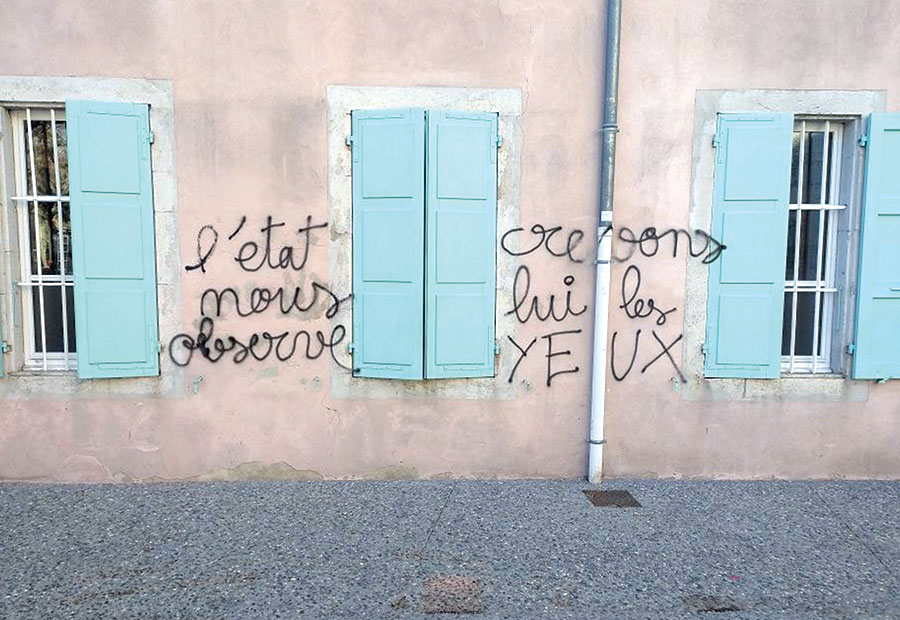 l'état
nous
observe
crevons
lui les
YEUX